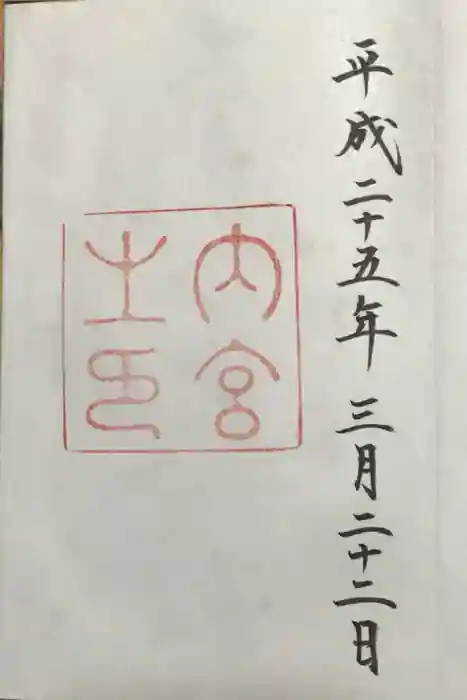 平成二十五年 三月二十二日
内宮
之印